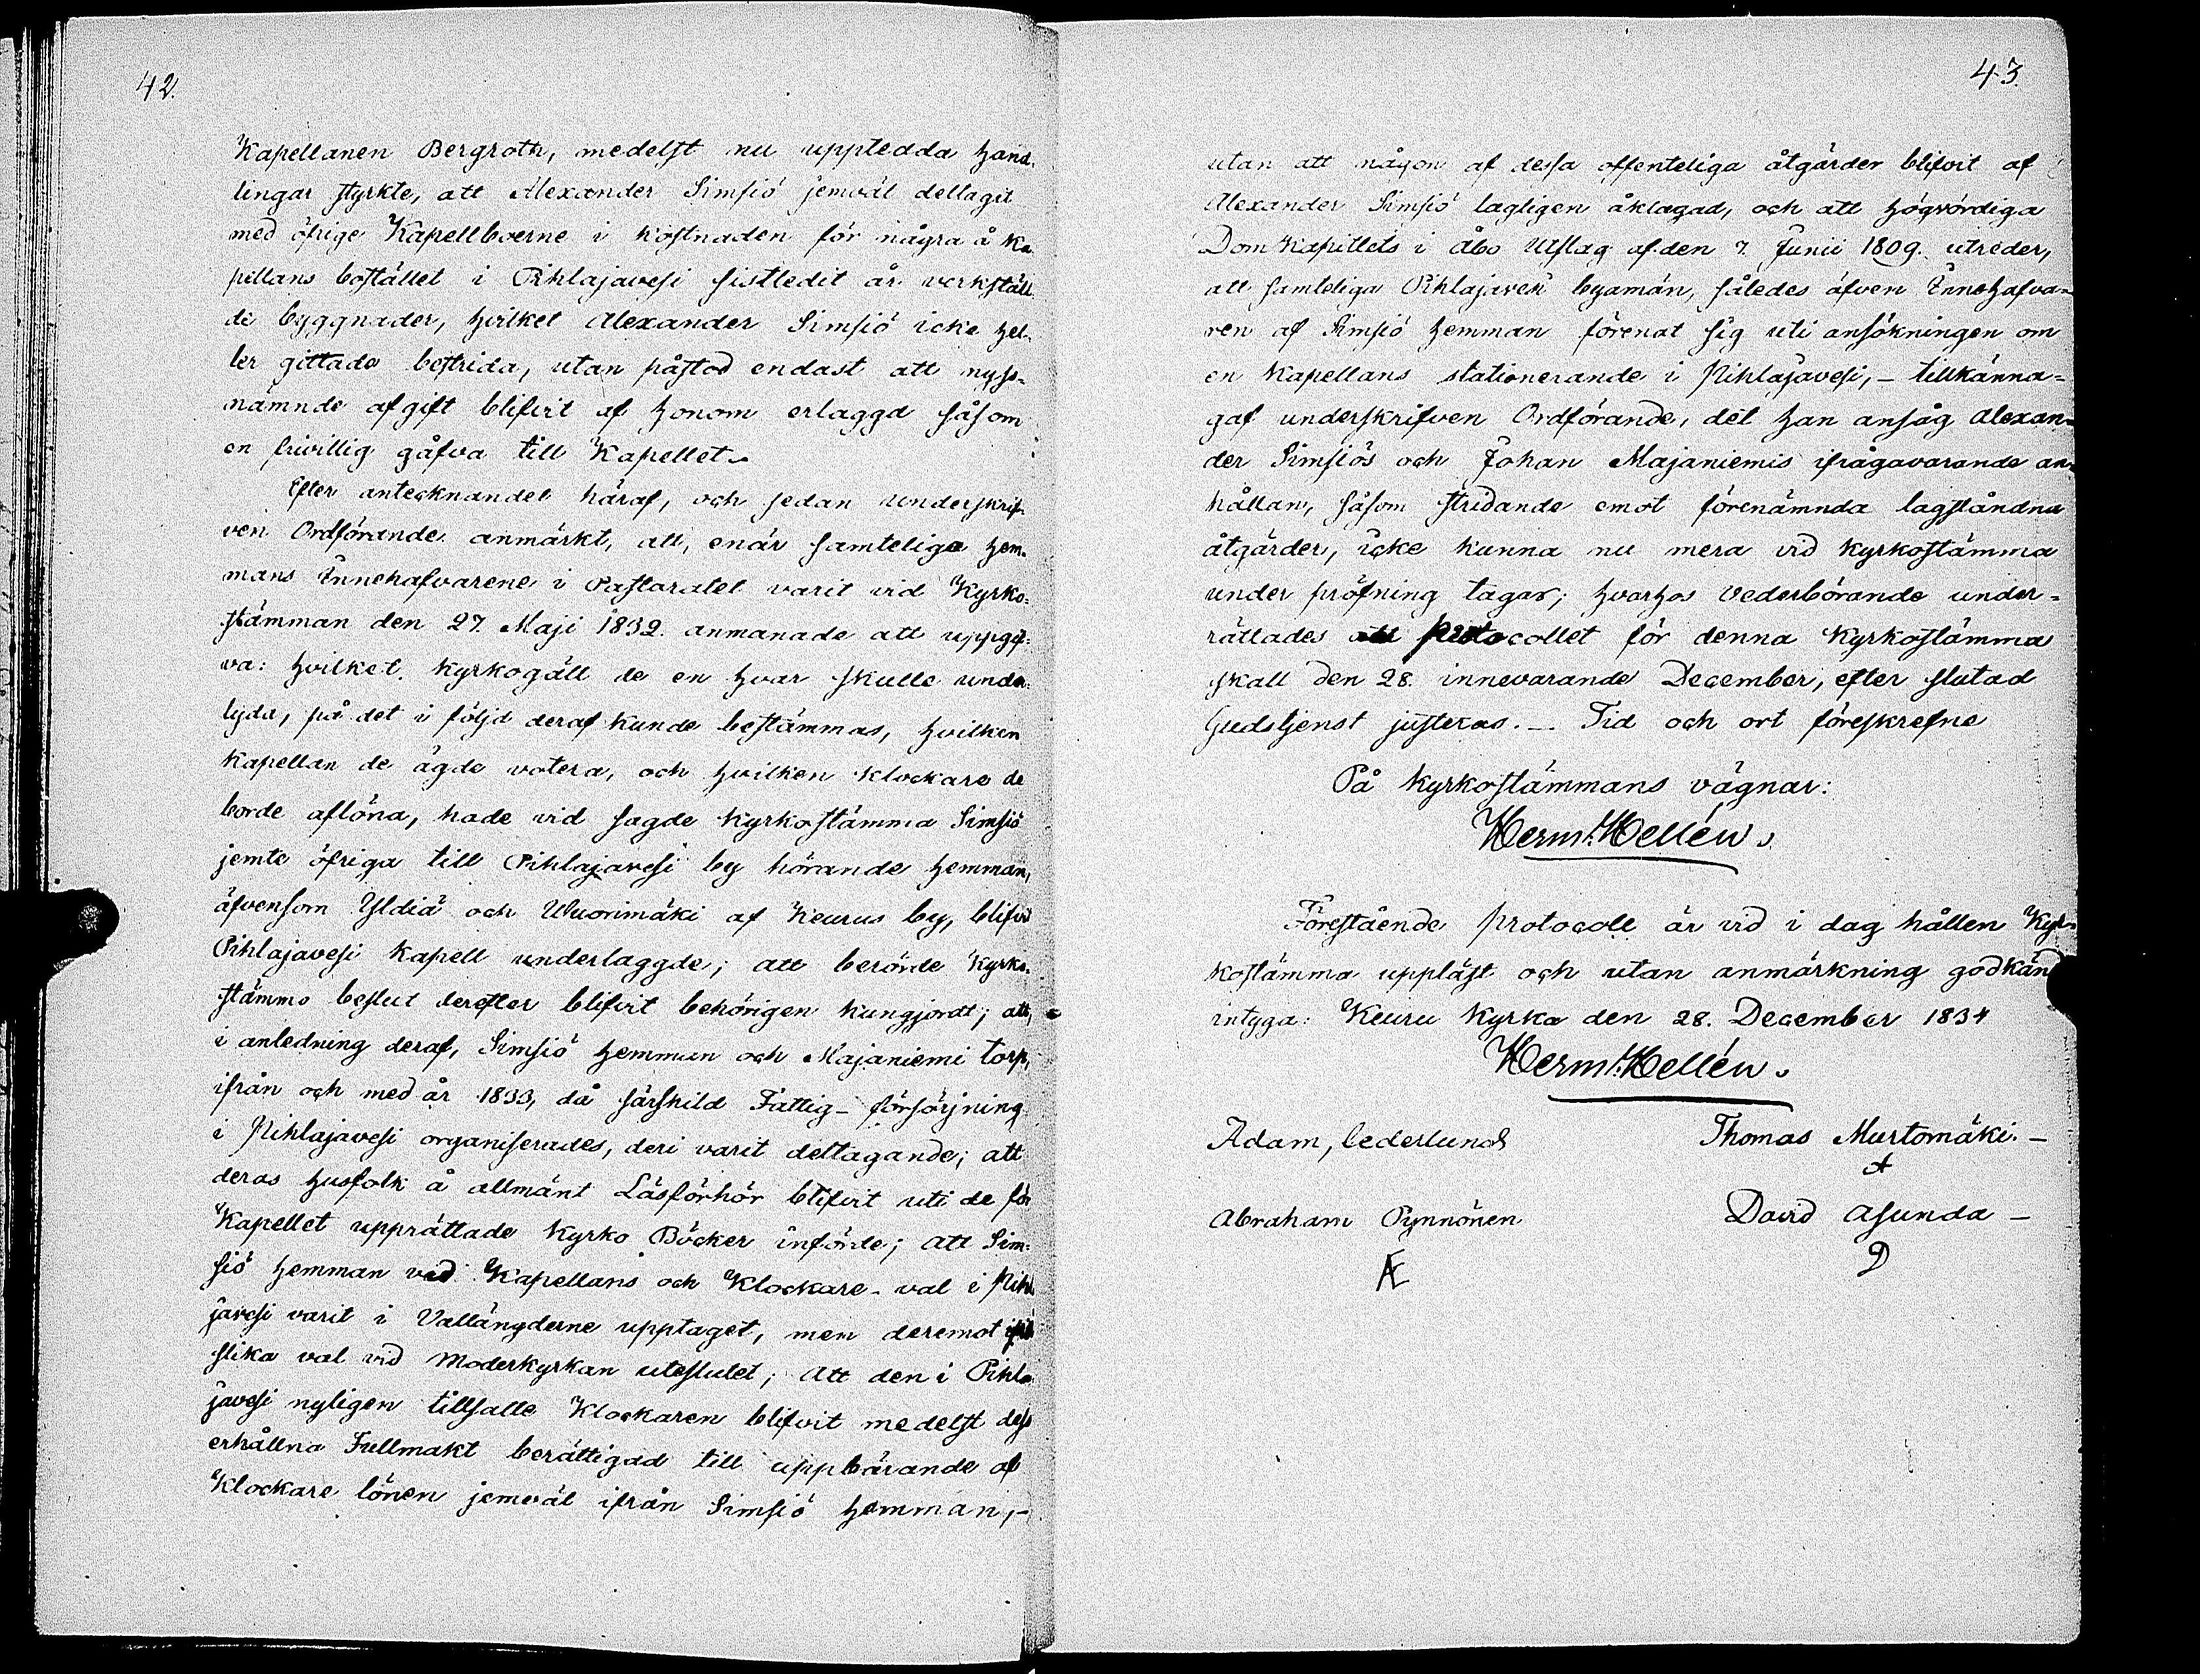 42.
Kapellanen Bergroth, medelst nu upptedda hand-
lingar styrkte, att Alexander Simsiö jemväl deltagit
med öfrige Kapellboerne i kostnaden för några å Ka
pellans bostället i Pihlajavesi sistledit år verkställ
de byggnader, hvilket Alexander Simsiö icke hel-
ler gittade bestrida, utan påstod endast att nyss-
nämnde afgift blifvit af honom erlaggd såsom
en frivillig gåfva till Kapellet.
Efter antecknandet häraf, och sedan underskrif-
ven Ordförande anmärkt, att, enär samtelige hem-
mans Innehafvarene i Pastoratet varit vid Kyrko-
stämman den 27. Maji 1832. anmanade att uppgif-
va: hvilket kyrkogäll de en hvar skulle under-
lyda, på det i följd deraf kunde bestämmas, hvilken
Kapellan de ägde votera, och hvilken klockare de
borde aflöna, hade vid sagde Kyrkostämma Simsiö
jemte öfriga till Pihlajavesi by hörande hemman,
äfvensom Yldiä och Wuorimäki af Keurus by, blifvit
Pihlajavesi Kapell underlaggde; att berörde Kyrko-
stämmo beslut derefter blifvit behörigen kungjordt; att,
i anledning deraf, Simsiö hemman och Majaniemi torp,
ifrån och med år 1833, då särskild Fattig-försörjning
i Pihlajavesi organiserades, deri varit deltagande; att
deras husfolk å allmänt Läsförhör blifvit uti de för
Kapellet upprättade Kyrko Böcker införde; att Sim-
siö hemman vid Kapellans och Klockare-val i Pihla
javesi varit i Vallängderne upptaget, men deremot ifrån
slika val vid Moderkyrkan uteslutet; att den i Pihla
javesi nyligen tillsatte Klockaren blifvit medelst dess
erhållna Fullmakt berättigad till uppbärande af
Klockare lönen jemväl ifrån Simsiö hemman,-
43.
utan att någon af dessa offenteliga åtgärder blifvit af
Alexander Simsiö lagligen åklagad, och att högvördiga
Dom Kapitlets i Åbo Utslag af den 7. Junii 1809. utreder,
att samteliga Pihlajavesi byamän, således äfven Innehafva-
ren af Simsiö hemman förenat sig uti ansökningen om
en Kapellans stationerande i Pihlajavesi,- tillkänna-
gaf underskrifven Ordförande, det han ansåg Alexan-
der Simsiös och Johan Majaniemis ifrågavarande an-
hållan, såsom stridande emot förenämnda lagståndna
åtgärder, icke kunna nu mera vid Kyrkostämma
under pröfning tagas; hvarhos Vederbörande under-
rättades att protocollet för denna Kyrkostämma
skall den 28. innevarande December, efter slutad
Gudstjenst justeras.- Tid och ort föreskrefne
På Kyrkostämmans vägnar:
Herm. Hellén.
Förestående protocoll är vid i dag hållen Kyr-
kostämma uppläst och utan anmärkning godkändt
intyga: Keuru Kyrka den 28. December 1834
Herm. Hellén.
Adam, Cederlund
Thomas Murtomäki.-
A
Abraham Pynnönen
David Asunda-
D